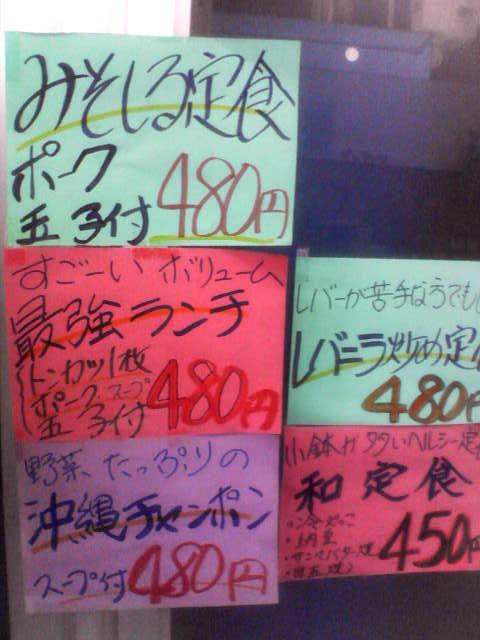 みそしる定食
ポーク
玉子付 480円
すごーいボリューム
最強ランチ
トンカツ1枚
ポーク スープ
玉子付 480円
野菜たっぷりの
沖縄チャンポン
スープ付 480円
レバーが苦手な方でも
レバニラ炒め定
480円
小鉢が タタいヘルシー定
和定食
・冷やっこ
・納豆
・サンマバター焼
450円